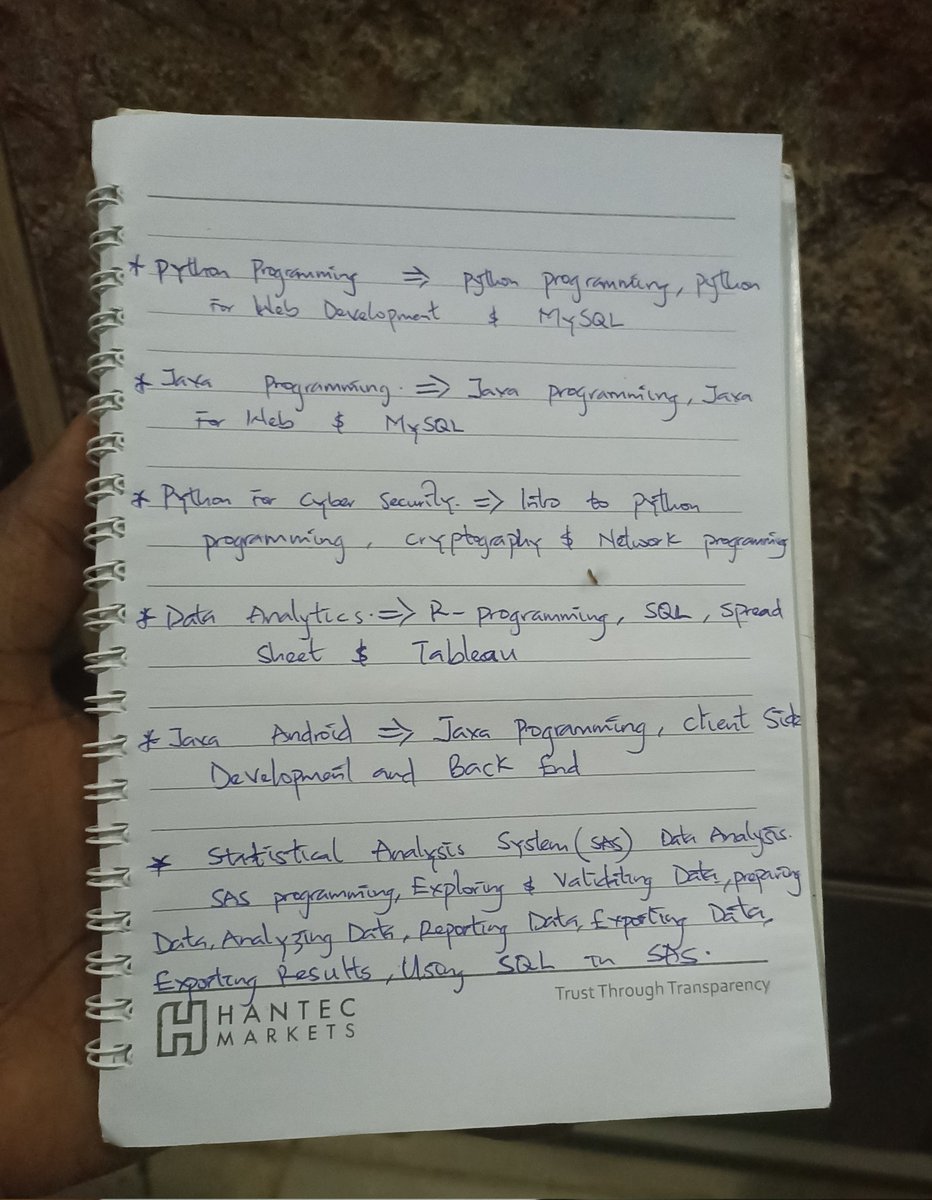 * Python Programming ⇒ Python programming, Python
For Web Development & MySQL
* Java Programming. ⇒ Java programming, Java
For Web & MySQL
* Python For Cyber Security. ⇒ Intro to Python
programming, cryptography & Network programming
* Data Analytics. ⇒ R-programming, SQL, Spread
Sheet & Tableau
* Java Android ⇒ Java Pogramming, Client Side
Development and Back End
* Statistical Analysis System (SAS) Data Analysis.
SAS programming, Exploring & Validiting Data, preparing
Data, Analyzing Data, Reporting Data, Exporting Data,
Exporting Results, Using SQL in SAS.
HANTEC MARKETS
Trust Through Transparency